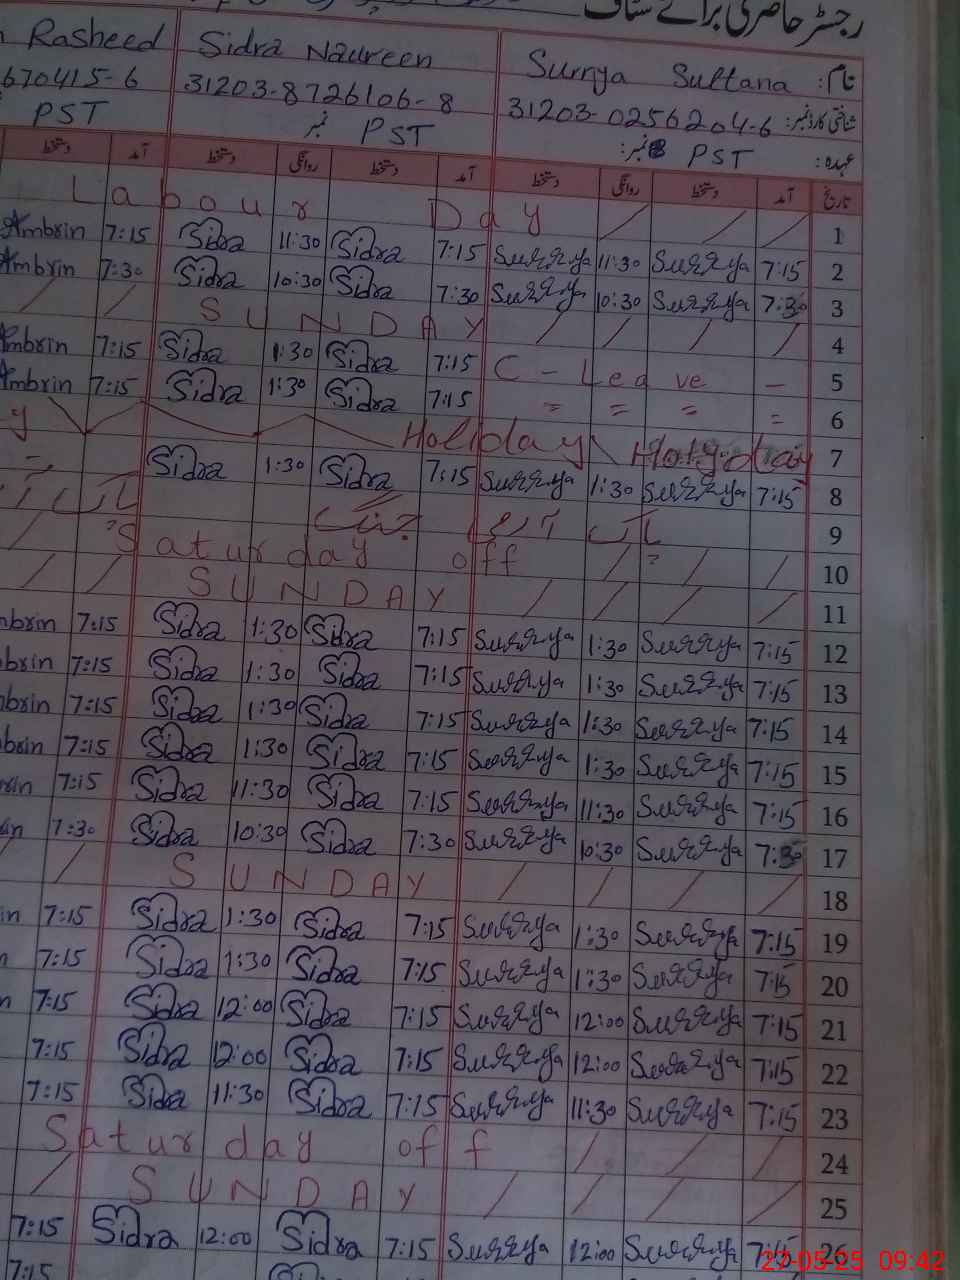 رجسٹر حاضری برائے سٹاف
Rasheed Sidra Naureen Surrya Sultana نام:
670415-6 31203-8726106-8 31203-0256204-6 شناختی کارڈ نمبر:
PST نمبر PST نمبر: PST عہدہ:
دستخط آمد دستخط روانگی دستخط آمد دستخط روانگی دستخط آمد تاریخ
Labour Day / / / 1
Ambrin 7:15 Sidra 11:30 Sidra 7:15 Surrya 11:30 Surrya 7:15 2
Ambrin 7:30 Sidra 10:30 Sidra 7:30 Surrya 10:30 Surrya 7:30 3
/ / SUNDAY / / / / 4
Ambrin 7:15 Sidra 1:30 Sidra 7:15 C - Leave - 5
Ambrin 7:15 Sidra 1:30 Sidra 7:15 = = = = 6
y Holiday Holyday 7
Sidra 1:30 Sidra 7:15 Surrya 1:30 Surrya 7:15 8
پاک جنگ 9
/ Saturday off / / / 10
/ / SUNDAY / / / / 11
mbrin 7:15 Sidra 1:30 Sidra 7:15 Surrya 1:30 Surrya 7:15 12
mbrin 7:15 Sidra 1:30 Sidra 7:15 Surrya 1:30 Surrya 7:15 13
mbrin 7:15 Sidra 1:30 Sidra 7:15 Surrya 1:30 Surrya 7:15 14
brin 7:15 Sidra 1:30 Sidra 7:15 Surrya 1:30 Surrya 7:15 15
rin 7:15 Sidra 11:30 Sidra 7:15 Surrya 11:30 Surrya 7:15 16
in 7:30 Sidra 10:30 Sidra 7:30 Surrya 10:30 Surrya 7:30 17
/ / SUNDAY / / / / 18
in 7:15 Sidra 1:30 Sidra 7:15 Surrya 1:30 Surrya 7:15 19
n 7:15 Sidra 1:30 Sidra 7:15 Surrya 1:30 Surrya 7:15 20
n 7:15 Sidra 12:00 Sidra 7:15 Surrya 12:00 Surrya 7:15 21
7:15 Sidra 12:00 Sidra 7:15 Surrya 12:00 Surrya 7:15 22
7:15 Sidra 11:30 Sidra 7:15 Surrya 11:30 Surrya 7:15 23
Saturday off / / / 24
/ SUNDAY / / / / 25
7:15 Sidra 12:00 Sidra 7:15 Surrya 12:00 Surrya 7:15 26
7:15
27-05-25 09:42